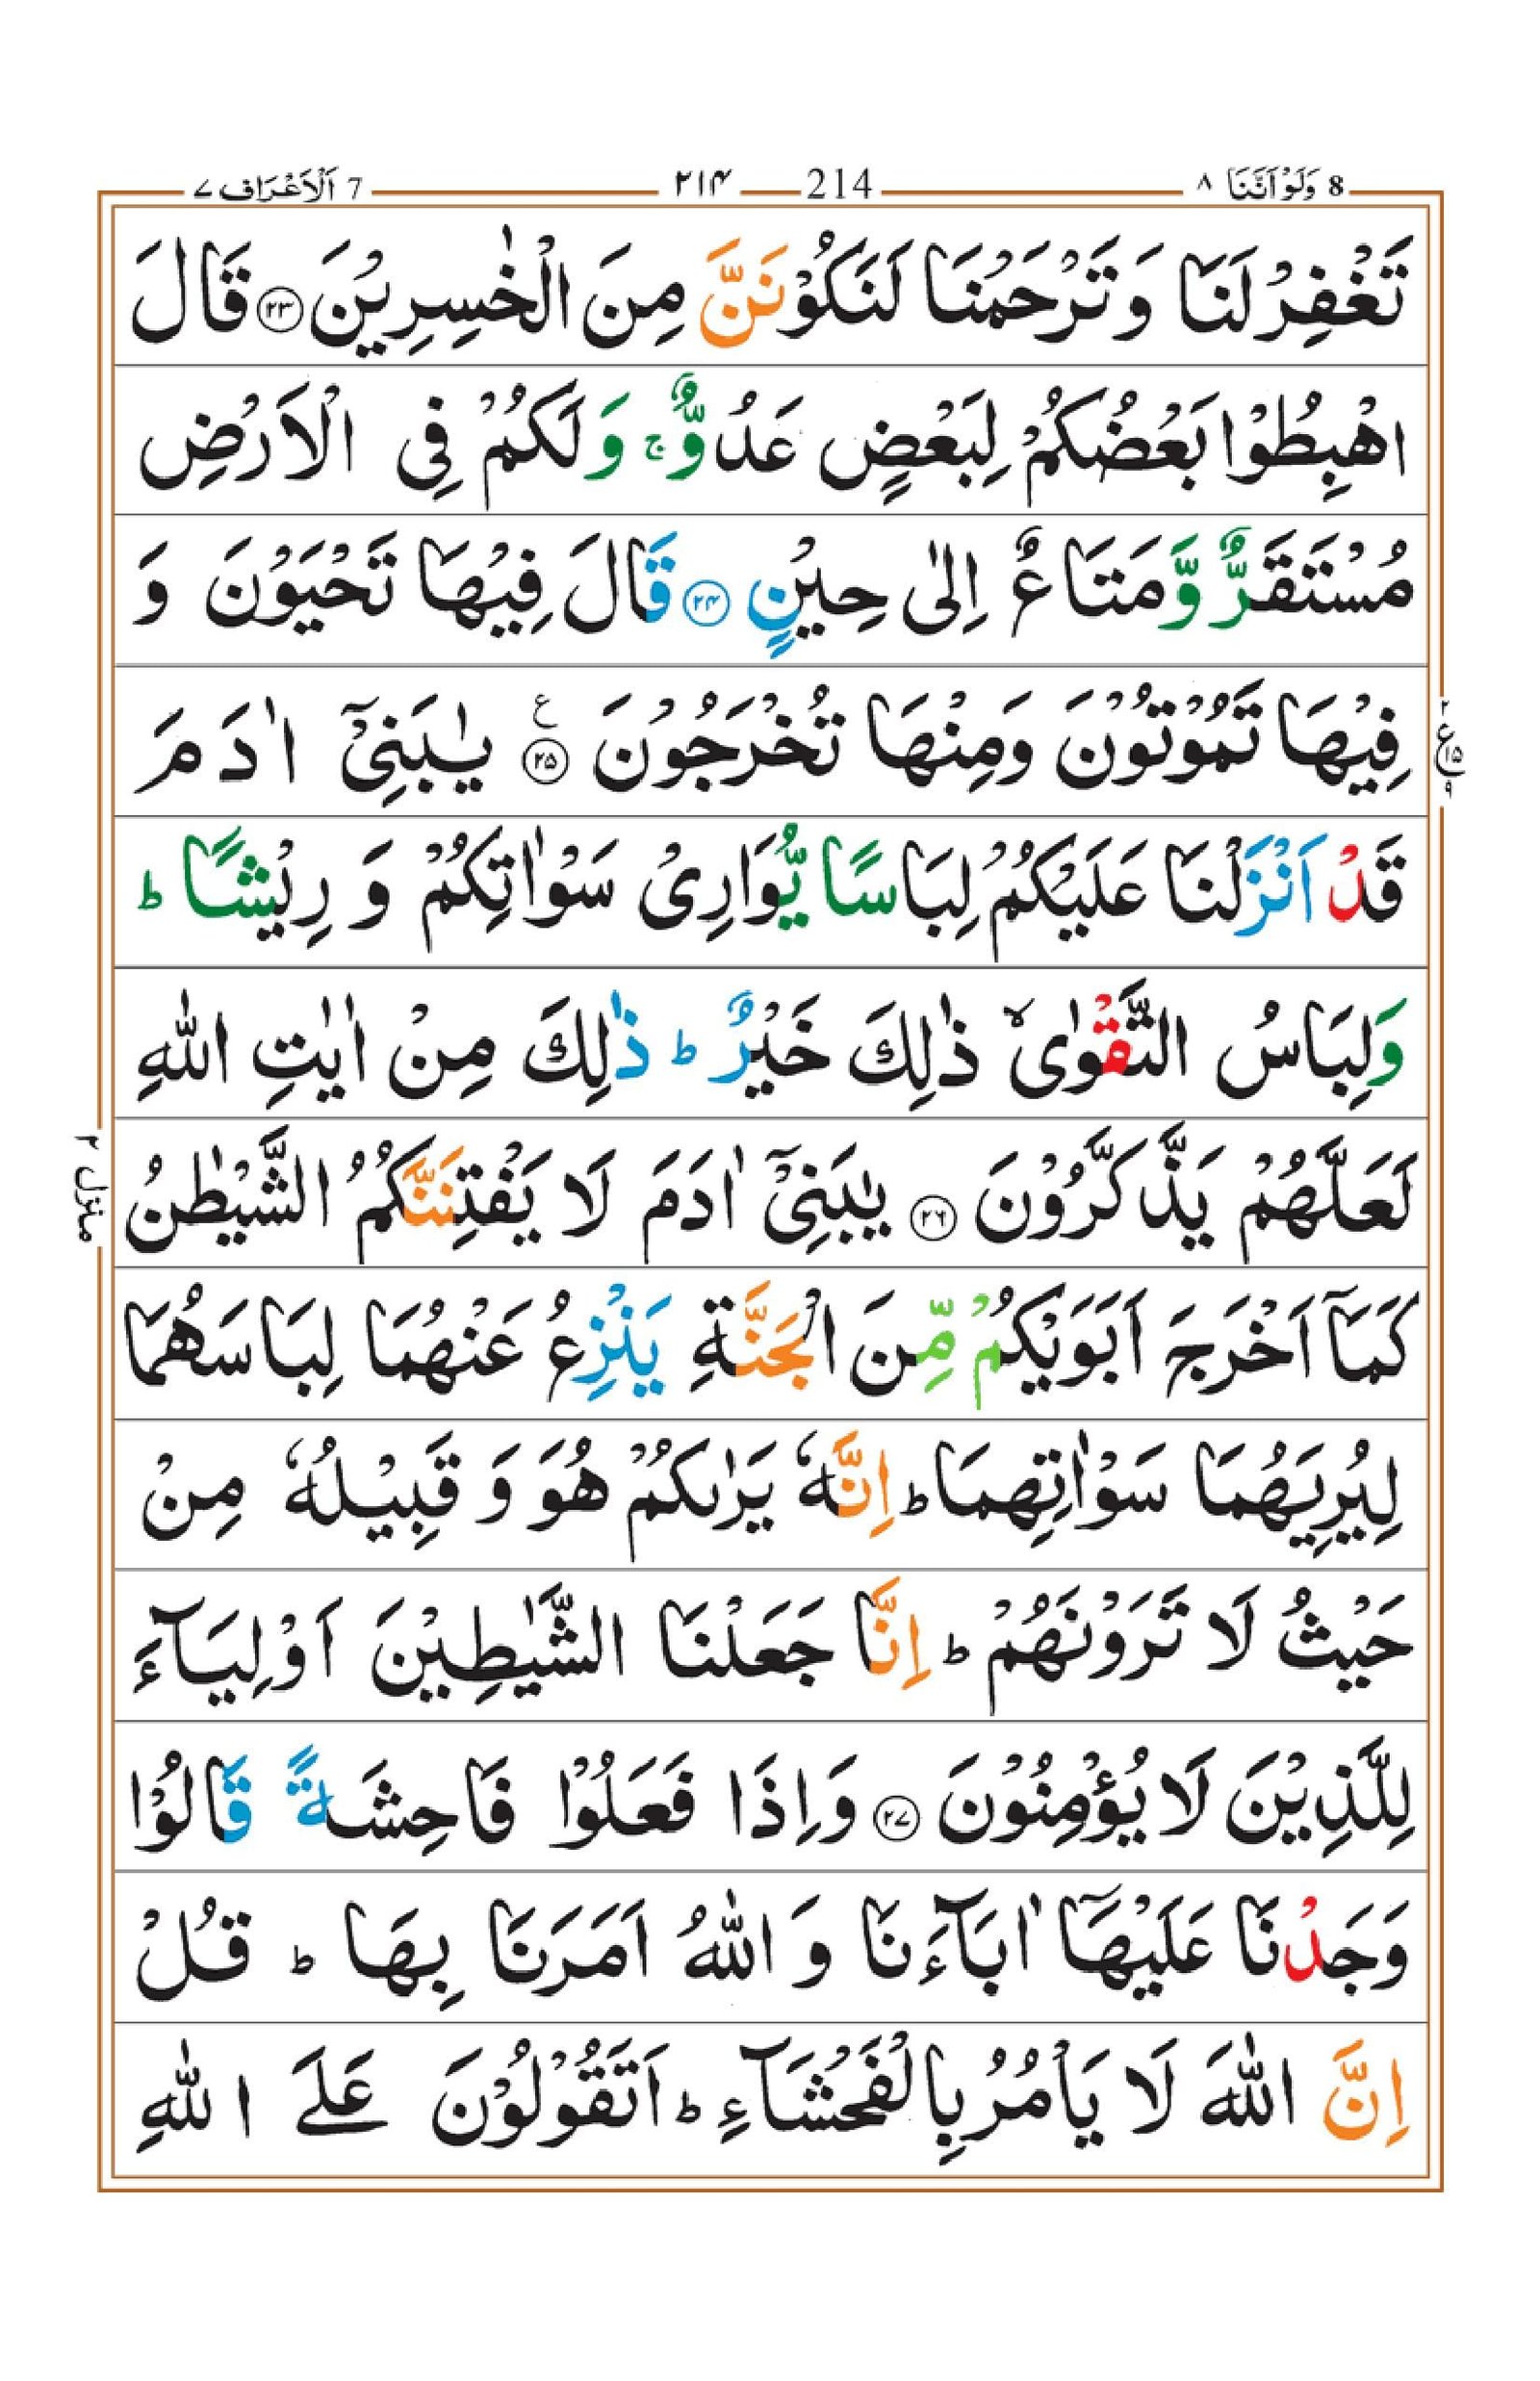 8 وَلَوْ اَنَّنَا ٨ 214 ٢١۴ 7 اَلْاَعْرَاف ٧
تَغْفِرْ لَنَا وَ تَرْحَمْنَا لَنَكُوْنَنَّ مِنَ الْخٰسِرِيْنَ ﴿٢٣﴾ قَالَ
اهْبِطُوْا بَعْضُكُمْ لِبَعْضٍ عَدُوٌّ ۚ وَ لَكُمْ فِى الْاَرْضِ
مُسْتَقَرٌّ وَّ مَتَاعٌ اِلٰى حِيْنٍ ﴿٢۴﴾ قَالَ فِيْهَا تَحْيَوْنَ وَ
فِيْهَا تَمُوْتُوْنَ وَمِنْهَا تُخْرَجُوْنَ ﴿٢۵﴾ ع يٰبَنِىْۤ اٰدَمَ
٢ ع ١۵ ٩
قَدْ اَنْزَلْنَا عَلَيْكُمْ لِبَاسًا يُّوَارِىْ سَوْاٰتِكُمْ وَ رِيْشًا ؕ
وَلِبَاسُ التَّقْوٰى ۙ ذٰلِكَ خَيْرٌ ؕ ذٰلِكَ مِنْ اٰيٰتِ اللّٰهِ
لَعَلَّهُمْ يَذَّكَّرُوْنَ ﴿٢٦﴾ يٰبَنِىْۤ اٰدَمَ لَا يَفْتِنَنَّكُمُ الشَّيْطٰنُ
منزل ٢
كَمَاۤ اَخْرَجَ اَبَوَيْكُمْ مِّنَ الْجَنَّةِ يَنْزِعُ عَنْهُمَا لِبَاسَهُمَا
لِيُرِيَهُمَا سَوْاٰتِهِمَا ؕ اِنَّهٗ يَرٰىكُمْ هُوَ وَ قَبِيْلُهٗ مِنْ
حَيْثُ لَا تَرَوْنَهُمْ ؕ اِنَّا جَعَلْنَا الشَّيٰطِيْنَ اَوْلِيَآءَ
لِلَّذِيْنَ لَا يُؤْمِنُوْنَ ﴿٢٧﴾ وَاِذَا فَعَلُوْا فَاحِشَةً قَالُوْا
وَجَدْنَا عَلَيْهَاۤ اٰبَآءَنَا وَ اللّٰهُ اَمَرَنَا بِهَا ؕ قُلْ
اِنَّ اللّٰهَ لَا يَاْمُرُ بِالْفَحْشَآءِ ؕ اَتَقُوْلُوْنَ عَلَى اللّٰهِ